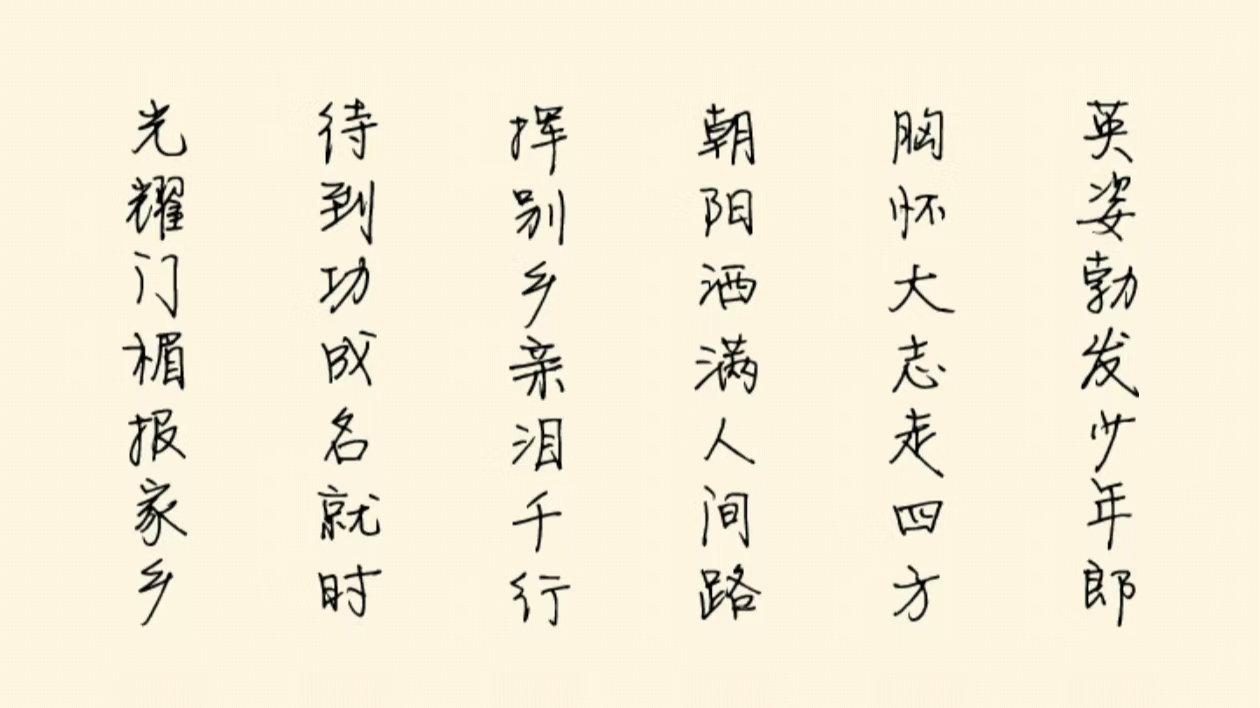 英姿勃发少年郎
胸怀大志走四方
朝阳洒满人间路
挥别乡亲泪千行
待到功成名就时
光耀门楣报家乡